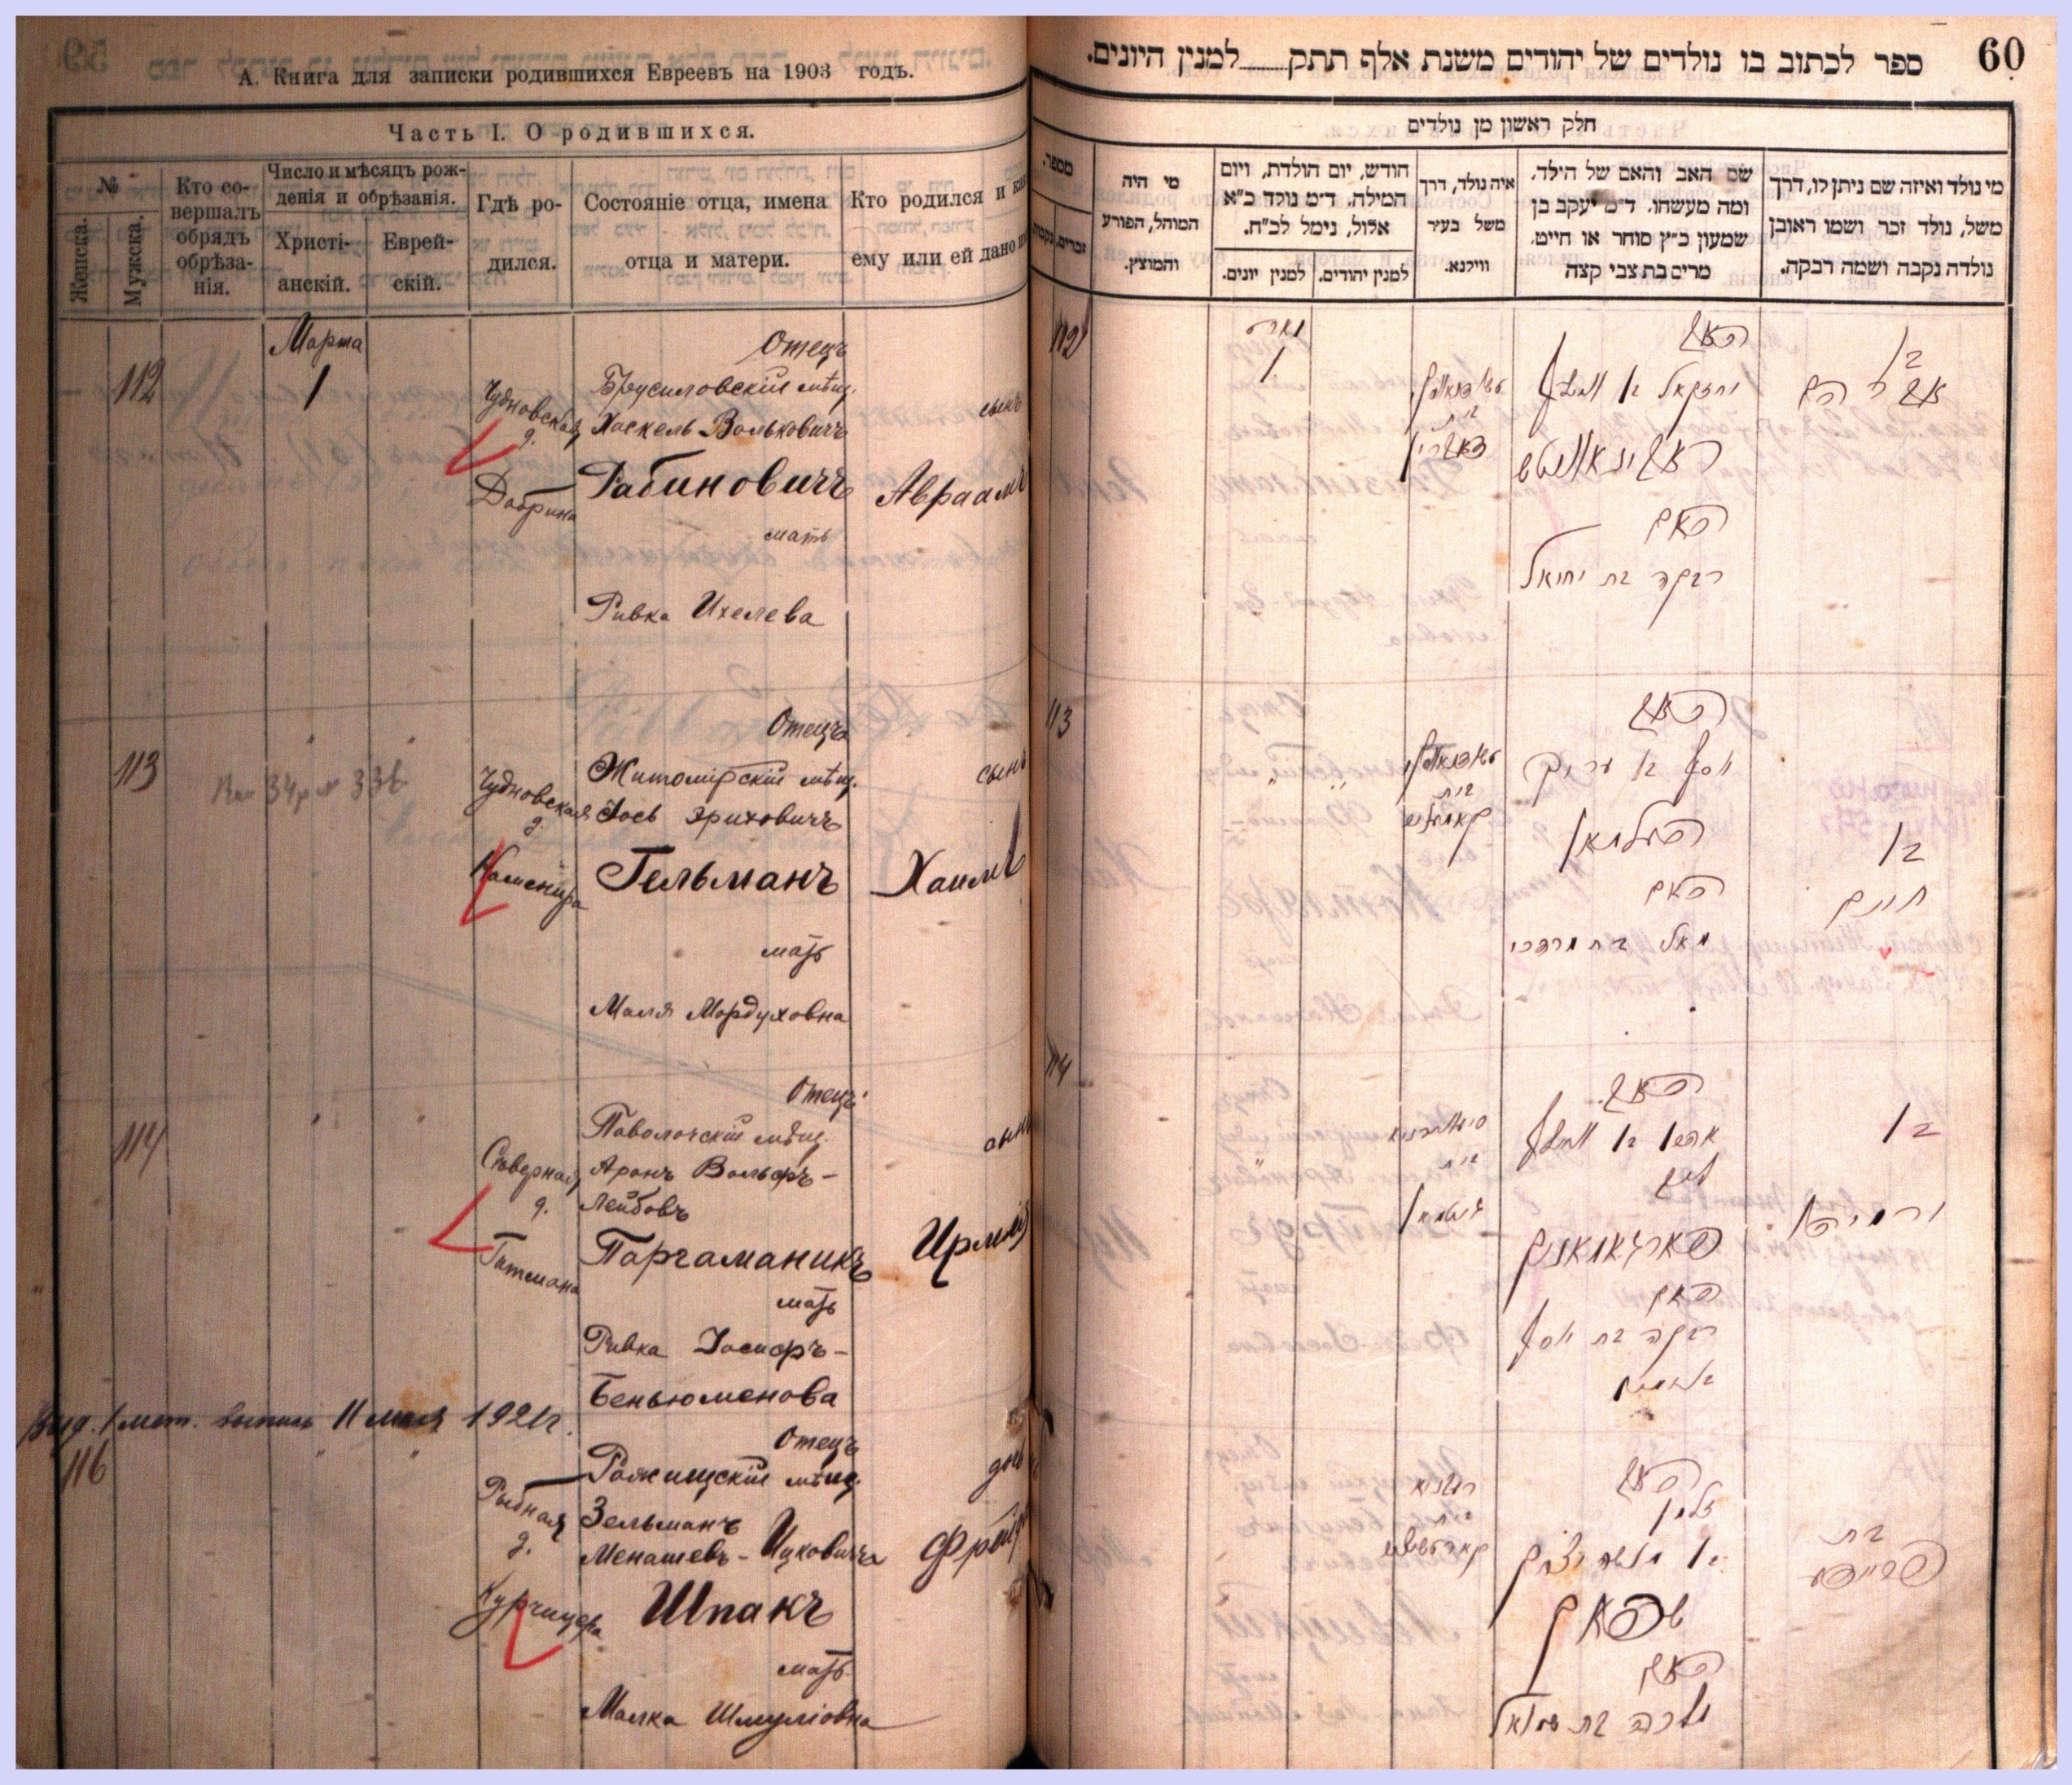 А. Книга для записки родившихся Евреевъ на 1903 годъ.
Часть I. О родившихся.
№
Женска.
Мужеска.
Кто со-
вершалъ
обрядъ
обрѣза-
нія.
Число и мѣсяцъ рож-
денія и обрѣзанія.
Христі-
анскій.
Еврей-
скій.
Гдѣ ро-
дился.
Состояніе отца, имена
отца и матери.
Кто родился и
ему или ей дано
Марта
112
1
Чудновская
д.
Добрина
Отецъ
Брусиловскій мѣщ.
Хаскель Вольковичъ
Рабиновичъ
мать
Ривка Ихелева
сынъ
Авраамъ
113
Чудновская
д.
Каменира
Отецъ
Житомірскій мѣщ.
Іось Эриховичъ
Гельманъ
мать
Маля Мордуховна
сынъ
Хаимъ
114
Сѣверная
д.
Гитмана
Отецъ
Паволочскій мѣщ.
Аронъ Вольфъ-
Лейбовъ
Паргаманикъ
мать
Ривка Іосифъ-
Беньюменова
сынъ
Ирмія
Выд. 1 мет. выпись 11 мая 1921 г.
116
Рыбная
д.
Курчицера
Отецъ
Рожищскій мѣщ.
Зельманъ
Менашевъ-Ицковичъ
Шпакъ
мать
Малка Шмуліовна
60
ספר לכתוב בו נולדים של יהודים משנת אלף תתק למנין היונים.
חלק ראשון מן נולדים
מספר.
זכרים.
נקבות
מי היה
המוהל, הפורע
והמוצץ.
חודש, יום הולדת, ויום
המילה. ד״מ נולד כ״א
אלול, נימל לכ״ח.
למנין יהודים.
למנין יונים.
איה נולד, דרך
משל בעיר
ווילנא.
שם האב והאם של הילד.
ומה מעשהו. ד״מ יעקב בן
שמעון כ״ץ סוחר או חייט.
מרים בת צבי קצה
מי נולד ואיזה שם ניתן לו, דרך
משל, נולד זכר ושמו ראובן
נולדה נקבה ושמה רבקה.
112
1
האב
יחזקאל בן וואלף
ראבינאוויטש
האם
רבקה בת יחיאל
בן
אברהם
113
האב
העלמאן
האם
מאלי בת מרדכי
בן
חיים
114
האב
אהרן בן וואלף
ליב
פארגאמאניק
האם
רבקה בת יוסף
בן
ירמיה
האב
זלמן
בן מנשה יצחק
שפאק
האם
מלכה בת שמואל
בת
פריידע